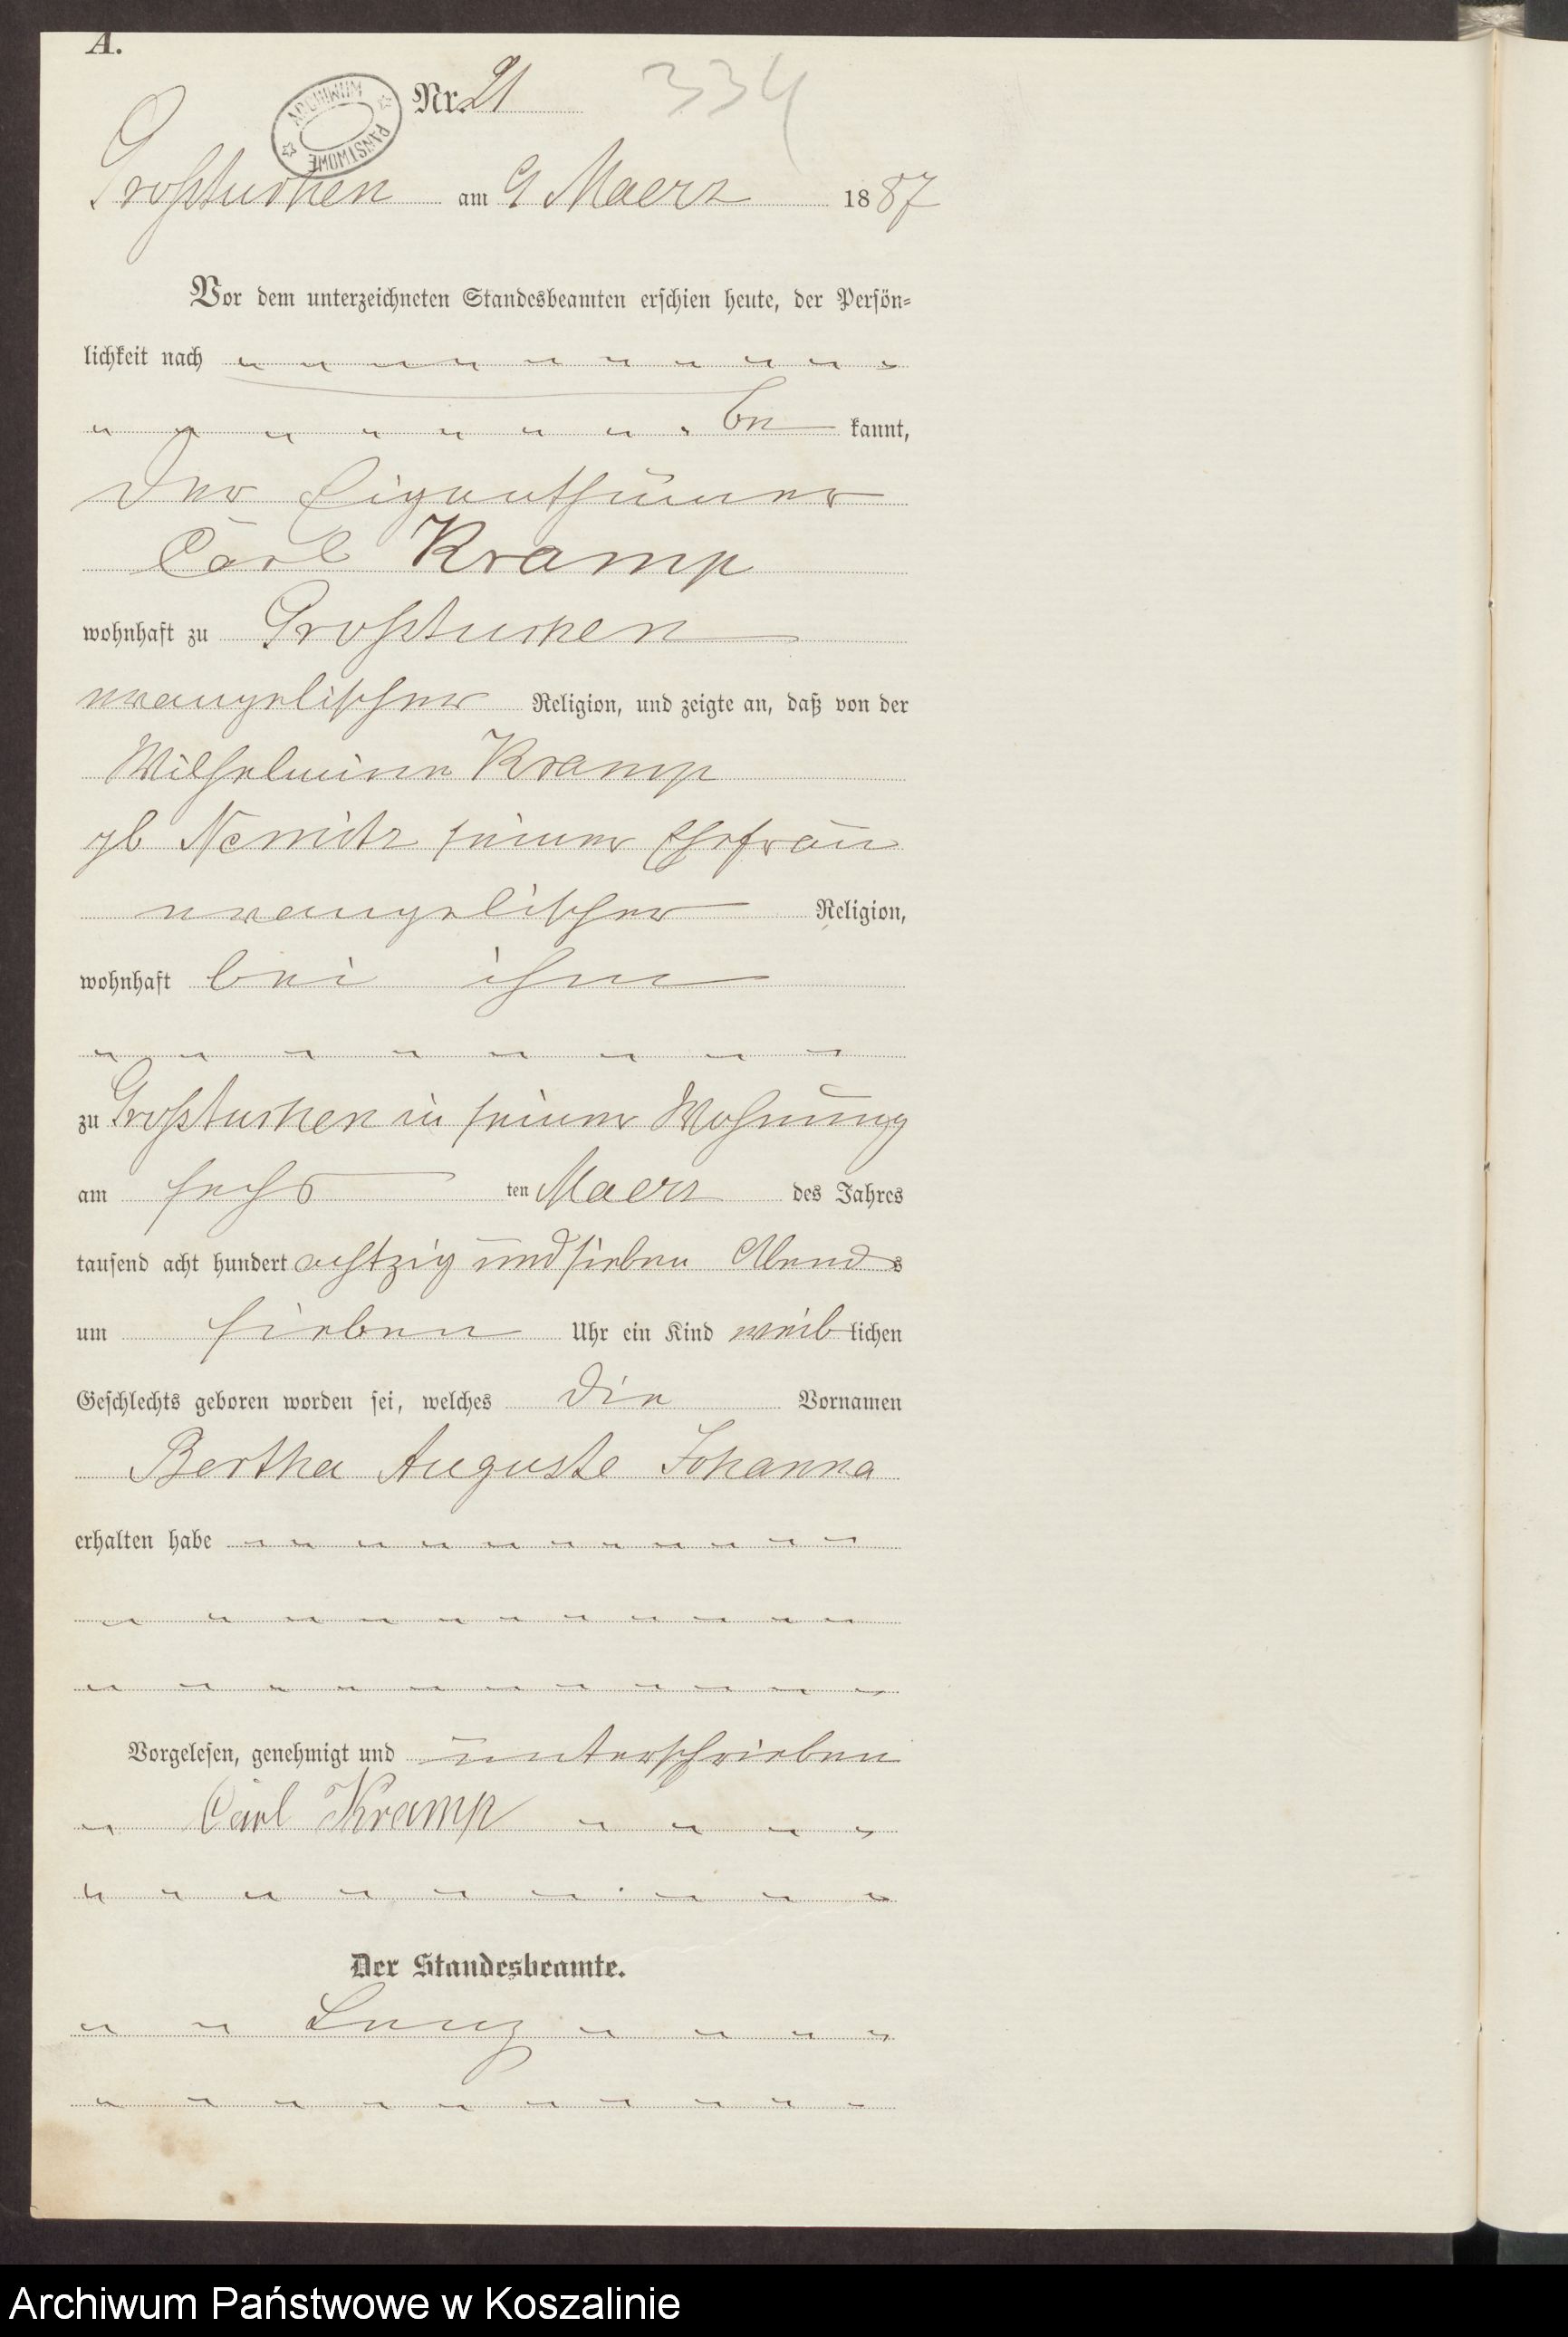 A.
ARCHIWUM PAŃSTWOWE
Nr. 21
334
Großtuchen am 9 Maerz 1887
Vor dem unterzeichneten Standesbeamten erschien heute, der Persön-
lichkeit nach
be kannt,
der Eigenthümer
Carl Kramp
wohnhaft zu Großtuchen
evangelischer Religion, und zeigte an, daß von der
Wilhelmine Kramp
gb Nemitz seiner Ehefrau
evangelischer Religion,
wohnhaft bei ihm
zu Großtuchen in seiner Wohnung
am sechs ten Maerz des Jahres
tausend acht hundert achtzig und sieben Abends
um sieben Uhr ein Kind weiblichen
Geschlechts geboren worden sei, welches die Vornamen
Bertha Auguste Johanna
erhalten habe
Vorgelesen, genehmigt und unterschrieben
Carl Kramp
Der Standesbeamte.
Archiwum Państwowe w Koszalinie